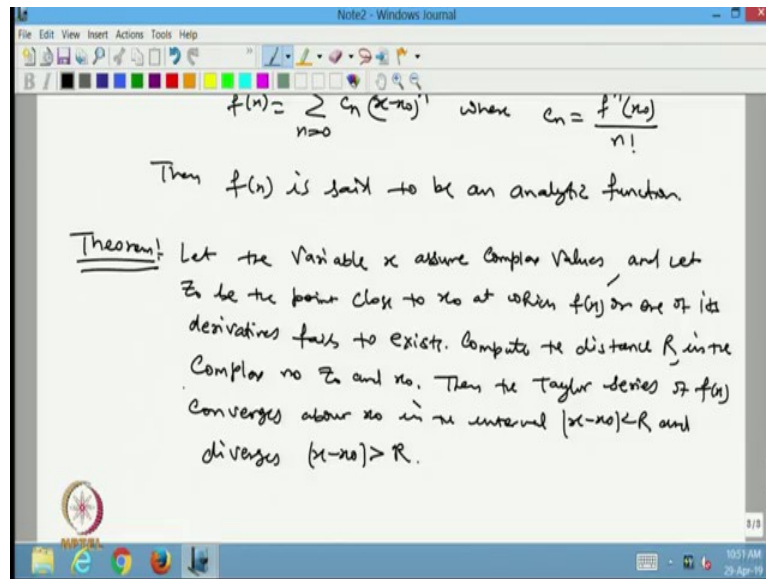 Note2 - Windows Journal
File Edit View Insert Actions Tools Help
f(x) = ∑ n=0 cn (x-x0)^n where cn = f^n(x0) / n!
Then f(x) is said to be an analytic function.
Theorem! Let the variable x assume complex values, and let
z0 be the point close to x0 at which f(x) or one of its
derivatives fails to exists. Compute te distance R, in the
Complex no z0 and x0. Then the Taylor series of f(x)
converges about x0 in the interval |x-x0|<R and
diverges |x-x0|> R.
NPTEL
3/3
10:51 AM
29-Apr-19